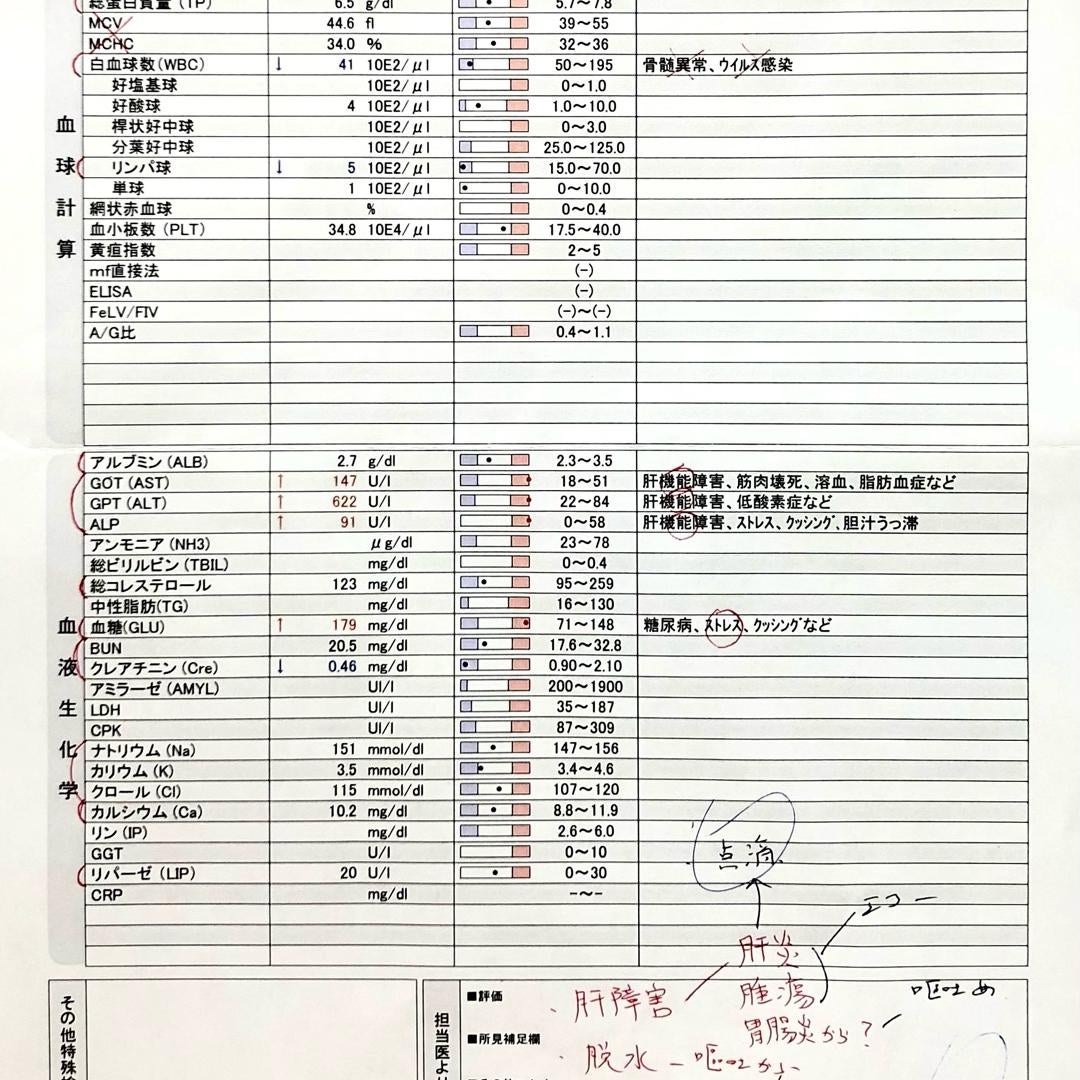 総蛋白質量 (TP) 6.5 g/dl 5.7～7.8
MCV 44.6 fl 39～55
MCHC 34.0 % 32～36
白血球数(WBC) ↓ 41 10E2/μl 50～195 骨髄異常、ウイルス感染
好塩基球 10E2/μl 0～1.0
好酸球 4 10E2/μl 1.0～10.0
桿状好中球 10E2/μl 0～3.0
分葉好中球 10E2/μl 25.0～125.0
リンパ球 ↓ 5 10E2/μl 15.0～70.0
単球 1 10E2/μl 0～10.0
網状赤血球 % 0～0.4
血小板数 (PLT) 34.8 10E4/μl 17.5～40.0
黄疸指数 2～5
mf直接法 (-)
ELISA (-)
FeLV/FIV (-)～(-)
A/G比 0.4～1.1
血球計算
アルブミン (ALB) 2.7 g/dl 2.3～3.5
GOT (AST) ↑ 147 U/l 18～51 肝機能障害、筋肉壊死、溶血、脂肪血症など
GPT (ALT) ↑ 622 U/l 22～84 肝機能障害、低酸素症など
ALP ↑ 91 U/l 0～58 肝機能障害、ストレス、クッシング、胆汁うっ滞
アンモニア (NH3) μg/dl 23～78
総ビリルビン (TBIL) mg/dl 0～0.4
総コレステロール 123 mg/dl 95～259
中性脂肪(TG) mg/dl 16～130
血糖(GLU) ↑ 179 mg/dl 71～148 糖尿病、ストレス、クッシングなど
BUN 20.5 mg/dl 17.6～32.8
クレアチニン (Cre) ↓ 0.46 mg/dl 0.90～2.10
アミラーゼ (AMYL) UI/l 200～1900
LDH UI/l 35～187
CPK UI/l 87～309
ナトリウム (Na) 151 mmol/dl 147～156
カリウム (K) 3.5 mmol/dl 3.4～4.6
クロール (Cl) 115 mmol/dl 107～120
カルシウム (Ca) 10.2 mg/dl 8.8～11.9
リン (IP) mg/dl 2.6～6.0
GGT U/l 0～10
リパーゼ (LIP) 20 U/l 0～30
CRP mg/dl -～-
血液生化学
点滴
エコー
肝炎
腫瘍
胃腸炎から?
嘔吐め
・肝障害
・脱水 － 嘔吐から
その他特殊検
担当医より
■評価
■所見補足欄